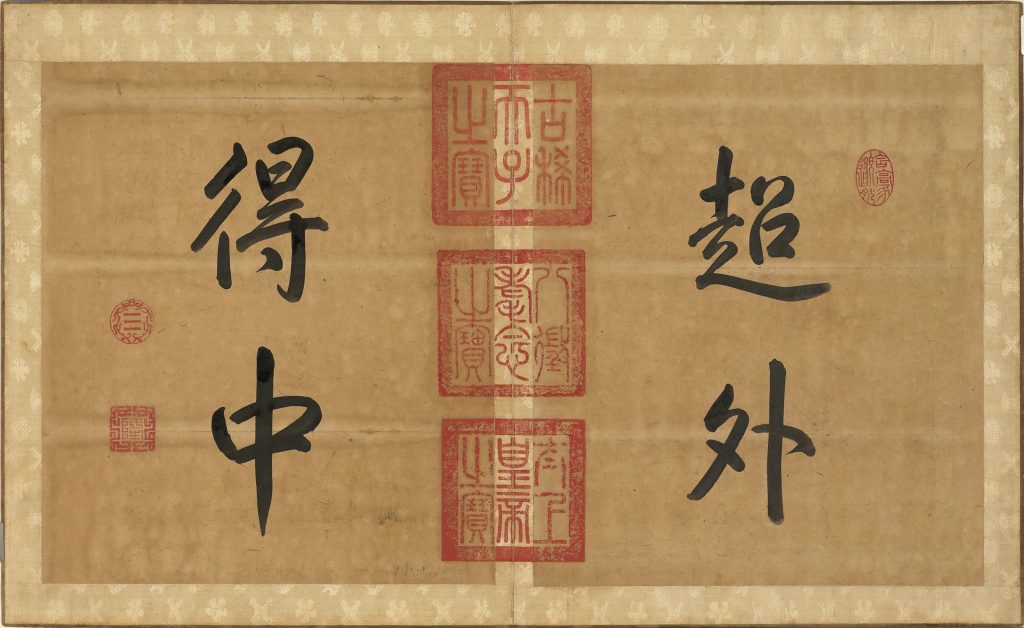 超外
古稀天子之寶
八徵耄念之寶
太上皇帝之寶
得中